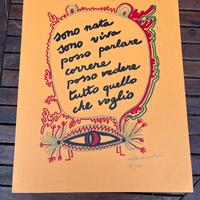 sono nata
sono viva
posso parlare
correre
posso vedere
tutto quello
che voglio